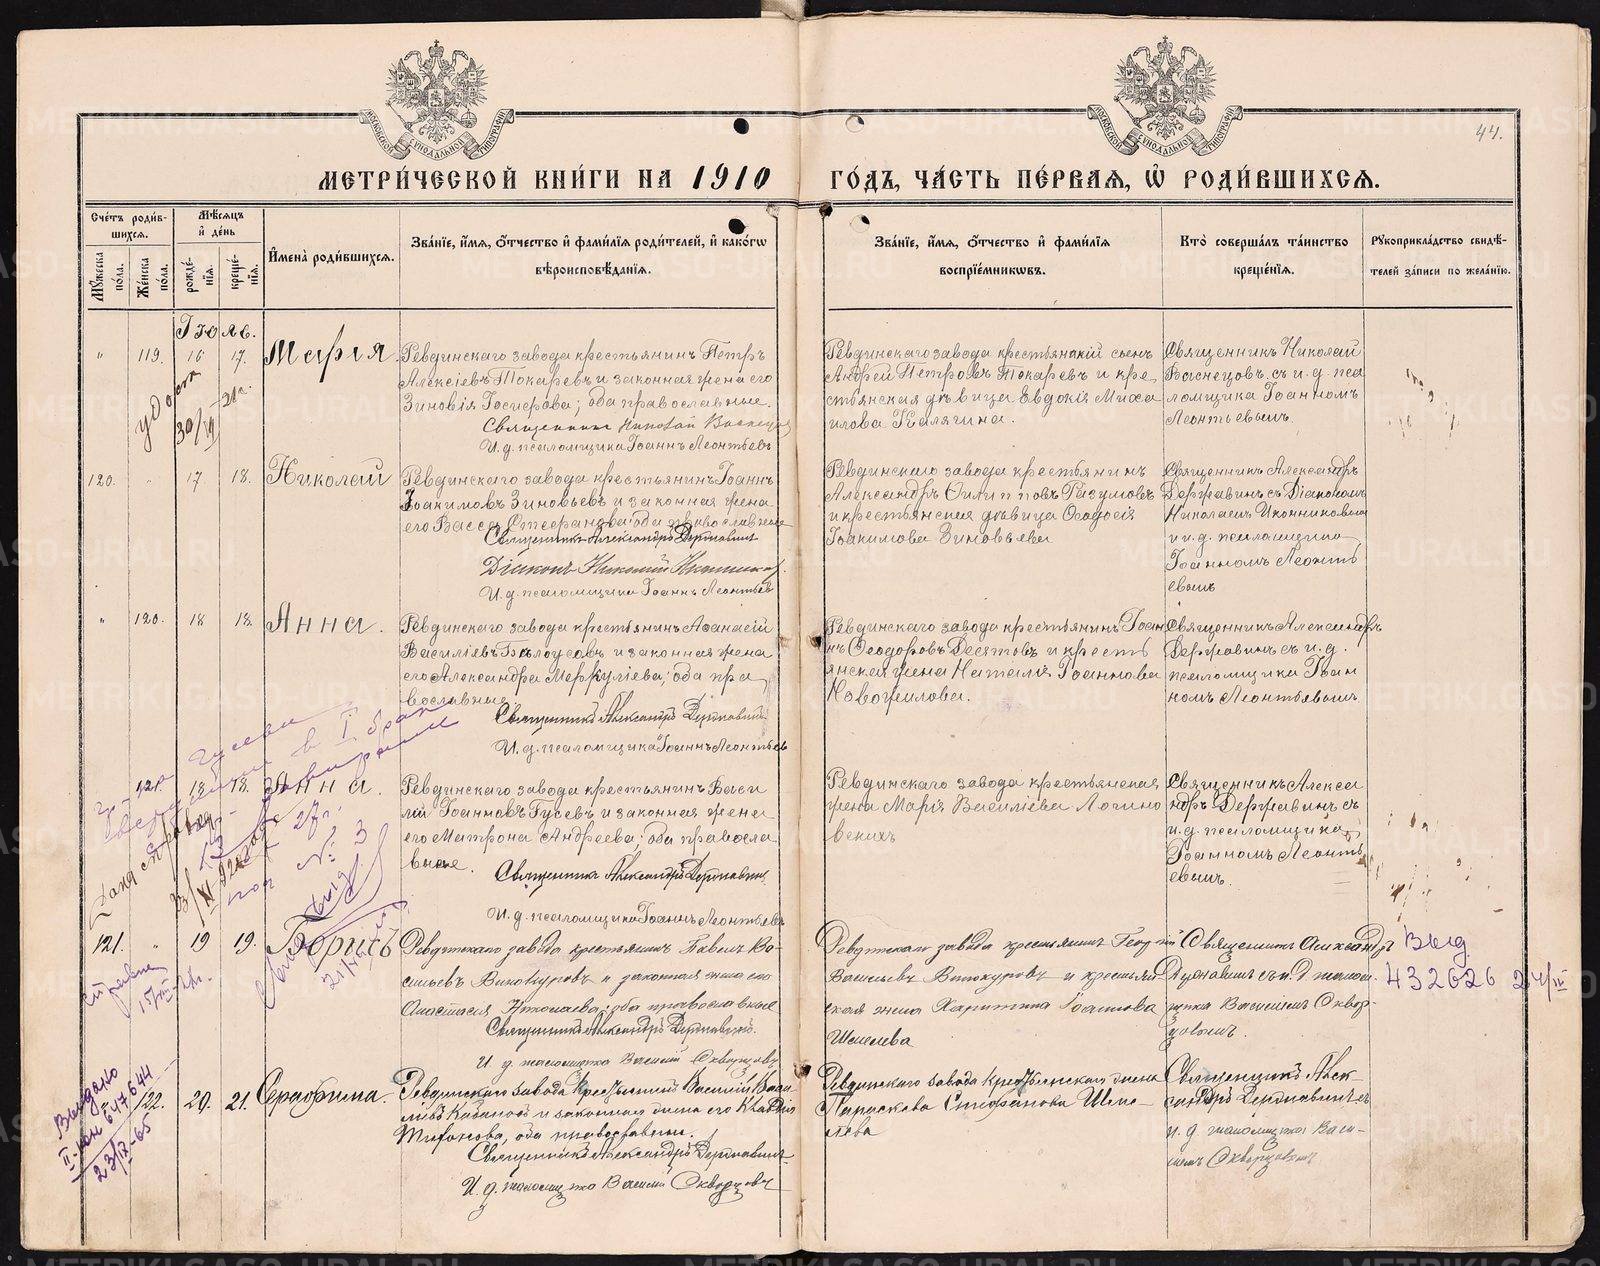 МЕТРИ́ЧЕСКОЙ КНИ́ГИ НА 1910
ГО́ДЪ, ЧА́СТЬ ПЕ́РВАЯ, Ѡ҆ РОДИ́ВШИХСЯ.
44.
Сче́тъ роди́в-
шихся.
Мѣ́сяцъ
и҆ де́нь
Му́жеска
по́ла.
Же́нска
по́ла.
рожде́-
нїя.
креще́-
нїя.
И҆мена̀ роди́вшихся.
Зва́нїе, и҆́мя, ѻ҆́тчество и҆ фами́лїя роди́телей, и҆ како́гѡ
вѣроисповѣ́данїя.
Зва́нїе, и҆́мя, ѻ҆́тчество и҆ фами́лїя
воспрїе́мникѡвъ.
Кто̀ соверша́лъ та́инство
креще́нїя.
Рꙋкоприкла́дство свидѣ́-
телей за́писи по жела́нїю.
Іюль.
" 119. 16 17. Марія.
Ревдинскаго завода крестьянинъ Петръ
Алексіевъ Токаревъ и законная жена его
Зиновія Іосифова; оба православные.
Священникъ Николай
И. д. псаломщика Іоаннъ Леонтьевъ
Ревдинскаго завода крестьянскій сынъ
Андрей Петровъ Токаревъ и кре
стьянская дѣвица Евдокія Миха
илова Калягина.
Священникъ Николай
Васнецовъ съ и. д. пса
ломщика Іоанномъ
Леонтьевымъ.
120. " 17 18. Николай
Ревдинскаго завода крестьянинъ Іоаннъ
Іоакимовъ Зиновьевъ и законная жена
его Васса Стефанова; оба православные
Священникъ Александръ Державинъ
Діаконъ Николай
И. д. псаломщика Іоаннъ Леонтьевъ
Ревдинскаго завода крестьянинъ
Александръ Филипповъ Разумовъ
и крестьянская дѣвица Ѳеодосія
Іоакимова Зиновьева
Священникъ Александръ
Державинъ съ Діакономъ
Николаемъ Иконниковымъ
и и. д. псаломщика
Іоанномъ Леонть
евымъ
" 120. 18 18. Анна.
Ревдинскаго завода крестьянинъ Аѳанасій
Василіевъ Бѣлоусовъ и законная жена
его Александра Меркуліева; оба пра
вославные
Священникъ Александръ Державинъ
И. д. псаломщика Іоаннъ Леонтьевъ
Ревдинскаго завода крестьянинъ Іоан
нъ Ѳеодоровъ Десятовъ и кресть
янская жена Наталія Іоаннова
Новожилова.
Священникъ Александръ
Державинъ съ и. д.
псаломщика Іоан
номъ Леонтьевымъ
121. 18 18. Анна.
Ревдинскаго завода крестьянинъ Васи
лій Іоанновъ Гусевъ и законная жена
его Матрона Андреева; оба правосла
вные.
Священникъ Александръ Державинъ
И. д. псаломщика Іоаннъ Леонтьевъ
Ревдинскаго завода крестьянская
жена Марія Василіева Логино
вскихъ
Священникъ Алекса
ндръ Державинъ съ
и. д. псаломщика
Іоанномъ Леонть
евымъ.
121. " 19 19. Борисъ
Ревдинскаго завода крестьянинъ Павелъ Ва-
сильевъ Винокуровъ и законная жена его
Анастасія Николаева; оба православные
Священникъ Александръ Державинъ.
И. д. псаломщика Василій Скворцовъ
Ревдинскаго завода крестьянинъ Георгій
Васильевъ Винокуровъ и крестьян
ская жена Харитина Іоаннова
Шмелева
Священникъ Александръ
Державинъ съ и. д. псалом
щика Василіемъ Сквор-
цовымъ.
Выд.
432626 24/IV
122. 20. 21. Серафима.
Ревдинскаго завода крестьянинъ Василій Васи
льевъ Кабановъ и законная жена его Клавдія
Тифонова, оба православные.
Священникъ Александръ Державинъ
И. д. псаломщика Василій Скворцовъ
Ревдинскаго завода крестьянская жена
Параскева Стефанова Шме
лева
Священникъ Алек-
сандръ Державинъ съ
и. д. псаломщика Васи-
ліемъ Скворцовымъ
Выдано